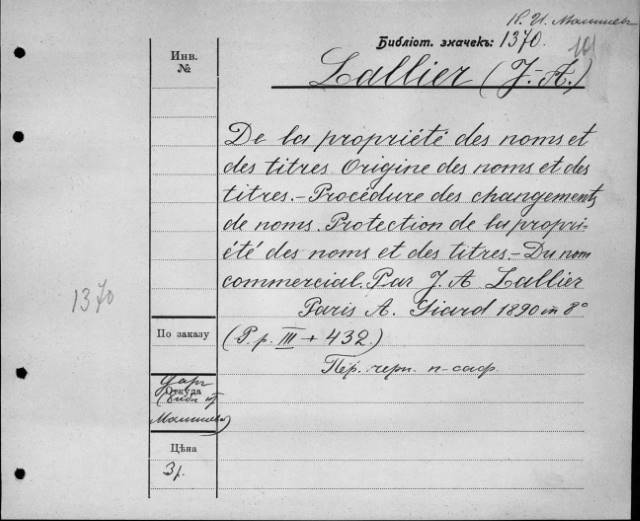 К. И. Малышев
Библіот. значекъ: 1370.
Lallier (J.-A.)
Инв.
№
De la propriété des noms et
des titres. Origine des noms et des
titres.- Procédure des changements
de noms. Protection de la propri-
été des noms et des titres.- Du nom
commercial. Par J. A. Lallier
Paris A. Giard 1890 in 8°
(P. p. III + 432.)
Пер. черн. п-саф.
1370
По заказу
Даръ
Откуда
Малышева)
Цѣна
3 р.